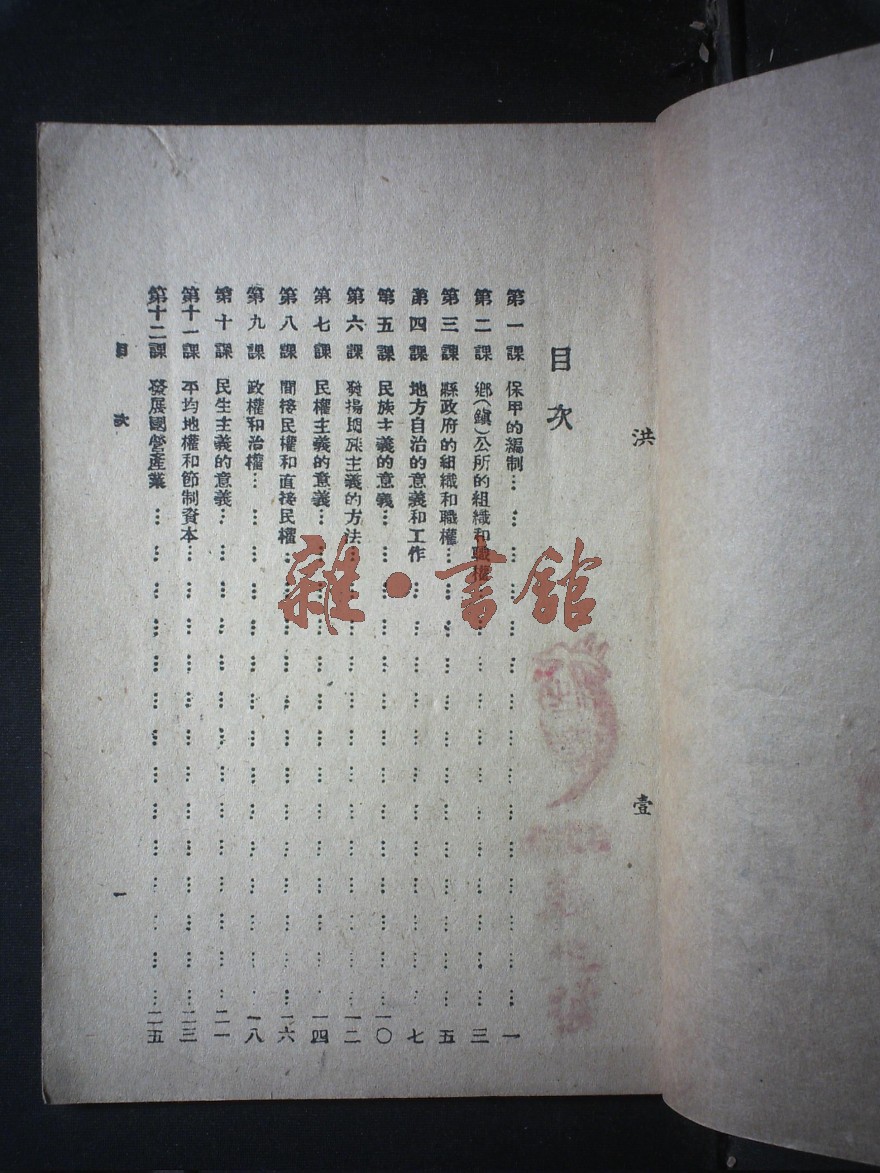 洪
壹
目次
第一課 保甲的編制………………一
第二課 鄉(鎭)公所的組織和職權………………三
第三課 縣政府的組織和職權………………五
第四課 地方自治的意義和工作………………七
第五課 民族主義的意義………………一〇
第六課 發揚民族主義的方法………………一二
第七課 民權主義的意義………………一四
第八課 間接民權和直接民權………………一六
第九課 政權和治權………………一八
第十課 民生主義的意義………………二一
第十一課 平均地權和節制資本………………二三
第十二課 發展國營產業………………二五
目次
一
雜·書館